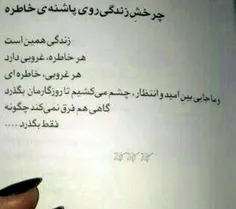 چرخش زندگی روی پاشنه‌ی خاطره
زندگی همین است
هر خاطره، غروبی دارد
هر غروبی، خاطره ای
و ما جایی بین امید و انتظار، چشم می‌کشیم تا روزگارمان بگذرد
گاهی هم فرق نمی‌کند چگونه
فقط بگذرد ....